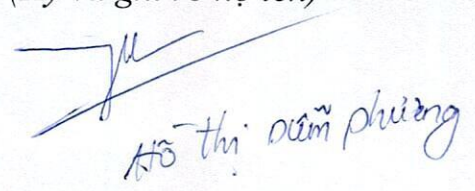 (Ký và ghi rõ họ tên)
Hồ thị Diễm phương